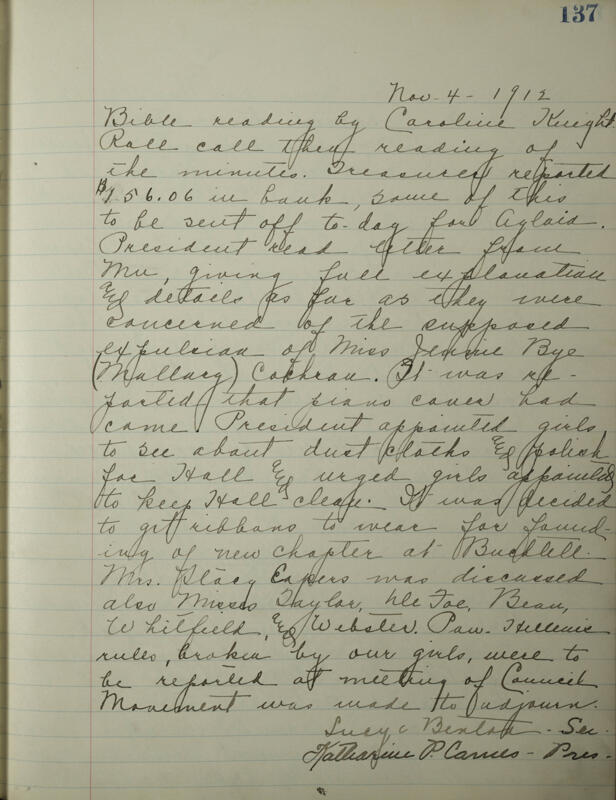 137
Nov. 4 - 1912
Bible reading by Caroline Knight
Roll call then reading of
the minutes. Treasurer reported
$156.06 in bank, some of this
to be sent off to-day for
President read letter from
Mu, giving full explanation
& details as far as they were
concerned of the supposed
expulsion of Miss Jennie Bye
(Mallary) Cochran. It was re-
ported that piano cover had
come. President appointed girls
to see about dust cloths & polish
for Hall & urged girls appointed
to keep Hall clean. It was decided
to get ribbons to wear for found
ing of new chapter at
Mrs. Stacy Capers was discussed
also Misses Taylor, De Foe, Bean,
Whitfield, & Webster. Pan. Hellenic
rules, broken by our girls, were to
be reported at meeting of Council
Movement was made to adjourn.
Lucy C Benton - Sec.
Katharine P. Carnes - Pres.